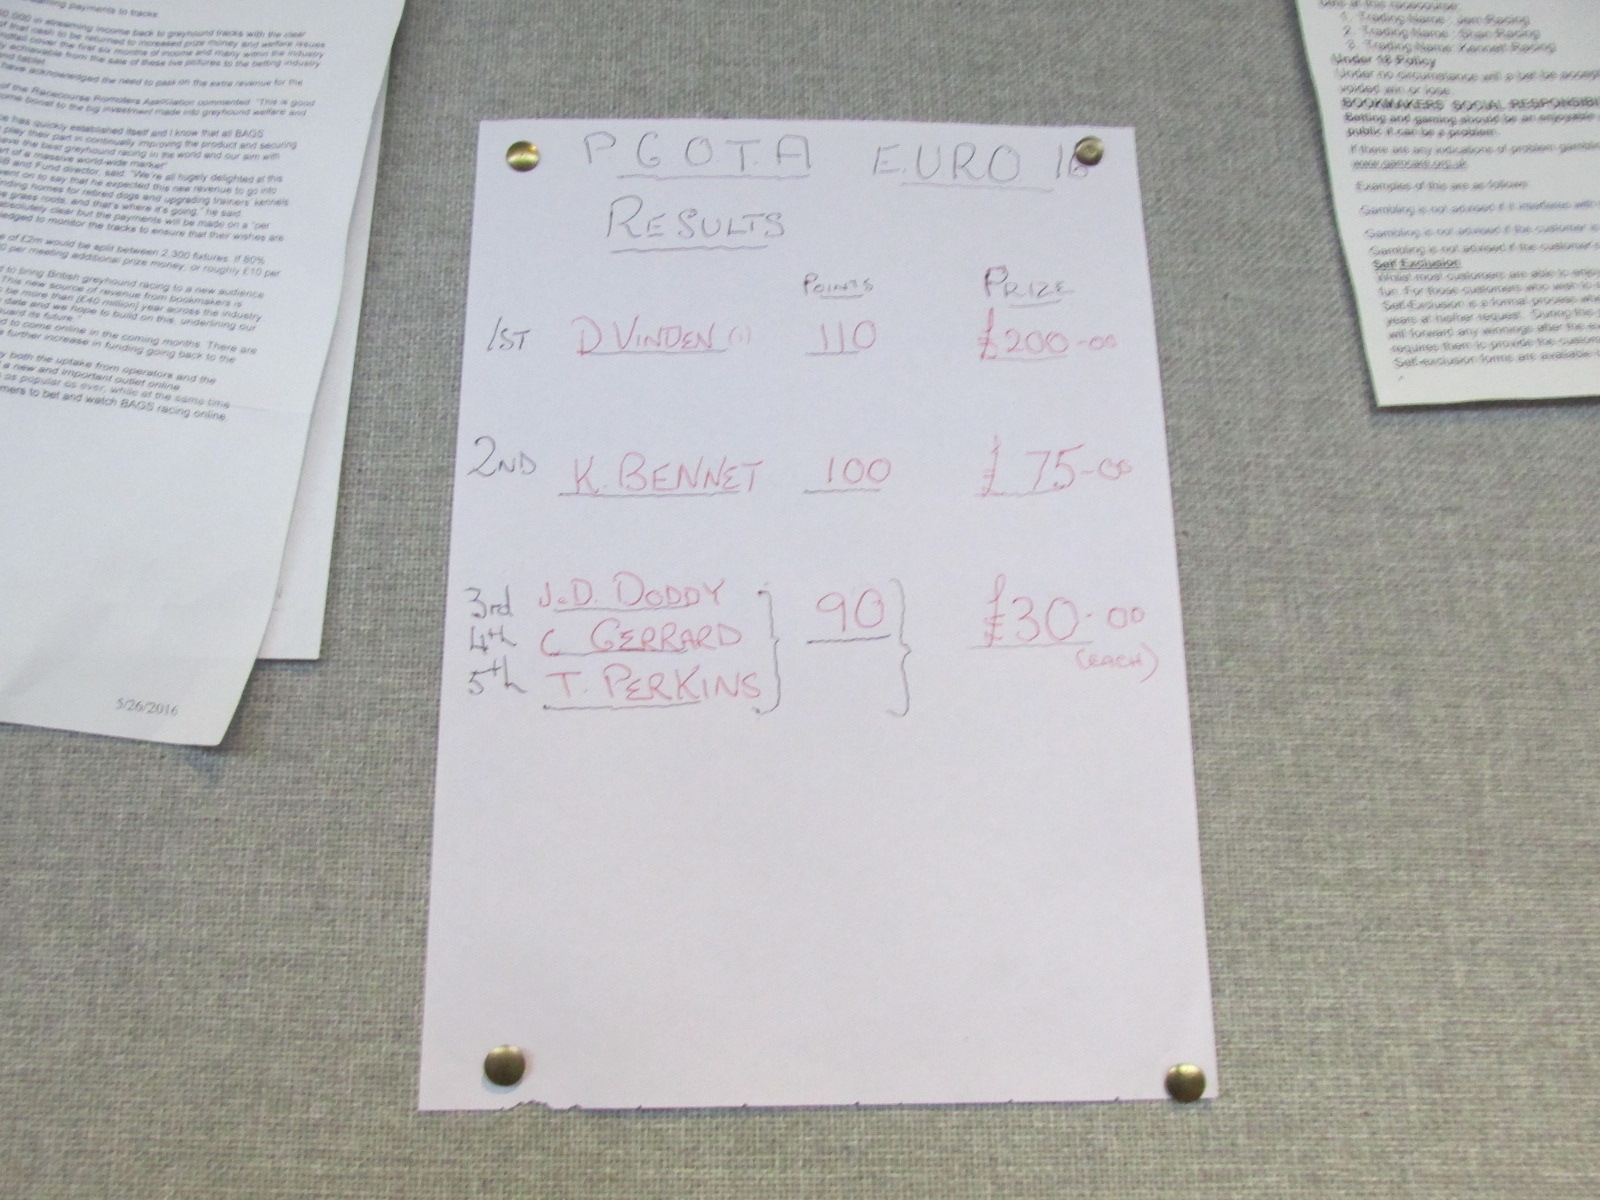 PGOTA EURO 16
RESULTS
POINTS PRIZE
1ST D VINDEN (1) 110 £200-00
2ND K. BENNET 100 £75-00
3rd J.D. DODDY 90 £30-00
4th C GERRARD (EACH)
5th T. PERKINS
streaming payments to tracks
in streaming income back to greyhound tracks with the clear
of that cash to be returned to increased prize money and welfare issues
cover the first six months of income and many within the industry
achievable from the sale of these live pictures to the betting industry
have acknowledged the need to pass on the extra revenue for the
of the Racecourse Promoters Association commented: "This is good
boost to the big investment made into greyhound welfare and
has quickly established itself and I know that all BAGS
play their part in continually improving the product and securing
the best greyhound racing in the world and our aim with
of a massive world-wide market"
and Fund director, said: "We're all hugely delighted at this
went on to say that he expected this new revenue to go into
homes for retired dogs and upgrading trainers' kennels
grass roots, and that's where it's going," he said.
absolutely clear but the payments will be made on a "per
to monitor the tracks to ensure that their wishes are
of £2m would be split between 2,300 fixtures. If 80%
per meeting additional prize money, or roughly £10 per
to bring British greyhound racing to a new audience
This new source of revenue from bookmakers is
be more than [£40 million] year across the industry
date and we hope to build on this, underlining our
its future."
to come online in the coming months. There are
further increase in funding going back to the
both the uptake from operators and the
a new and important outlet online
as popular as ever, while at the same time
to bet and watch BAGS racing online.
5/26/2016
1. Trading Name: Racing
2. Trading Name: Racing
3. Trading Name: Kennett Racing
Under 18 Policy
Under no circumstance will a bet be
voided win or lose.
BOOKMAKERS SOCIAL
Betting and gaming should be an enjoyable
public it can be a problem.
If there are any indications of problem
www.gamcare.org.uk
Examples of this are as follows:
Gambling is not advised if it interferes with
Gambling is not advised if the customer is
Gambling is not advised if the customer
Self Exclusion
Whilst most customers are able to enjoy
fun. For those customers who wish to
Self-Exclusion is a formal process
years at his/her request. During this
will forward any winnings after the
requires them to provide the
Self-exclusion forms are available